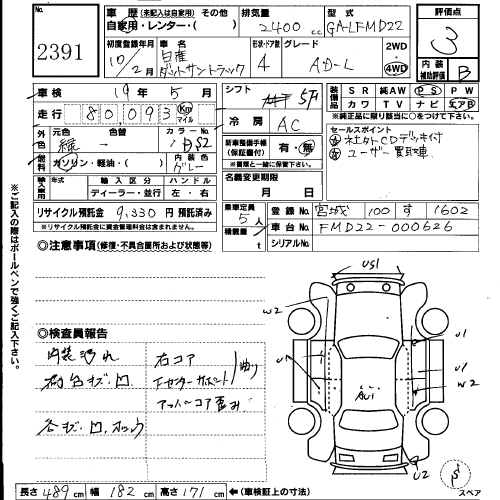 No.
2391
車歴 (未記入は自家用) その他
自家用・レンター・( )
排気量
2400 cc
型式
GA-LFMD22
評価点
3
初度登録年月
10/2月
車名
日産
ダットサントラック
形状・ドア数
4
グレード
AD-L
2WD
4WD
内装
補助評価
B
車検 19年 5月
走行 80,093 Km マイル
シフト
5F
冷房
AC
装備品
SR 純AW PS PW
カワ TV ナビ エアB
※純正品に限り該当に○をつけて下さい。
外色
元色 色替 カラーNo.
緑 ー
燃料
ガソリン・軽油・( )
内装色
グレー
新車整備手帳
(保証書付)
有・無
※車両と一緒に保管下さい。
セールスポイント
社外CDデッキ付
ユーザー買取車
輸入車
年式 輸入区分 ハンドル
ディーラー・並行 左・右
名義変更期限
月 日
リサイクル預託金 9,330円 預託済み
※リサイクル預託金に資金管理料金は含まれません。
乗車定員
5人
積載量
t
登録No. 宮城 100 す 1602
車台No. FMD22-000626
シリアルNo.
◎注意事項 (修復・不具合箇所および状態等)
◎検査員報告
内装汚れ
右コア
下センターサポート
曲り
各キズ、凹
US1
W2
U1
U1
W2
AU1
U2
スペア
長さ 489 cm 幅 182 cm 高さ 171 cm ←(車検証上の寸法)
※ご記入の際はボールペンで強くご記入下さい。